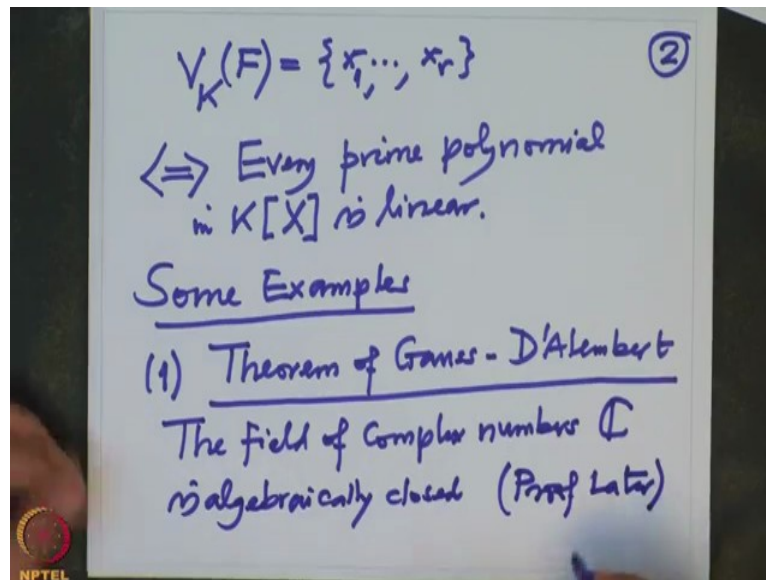 ②
V_K(F) = {x₁, ..., x_r}
<=> Every prime polynomial
in K[X] is linear.
Some Examples
(1) Theorem of Gauss - D'Alembert
The field of Complex numbers ℂ
is algebraically closed (Proof Later)
NPTEL